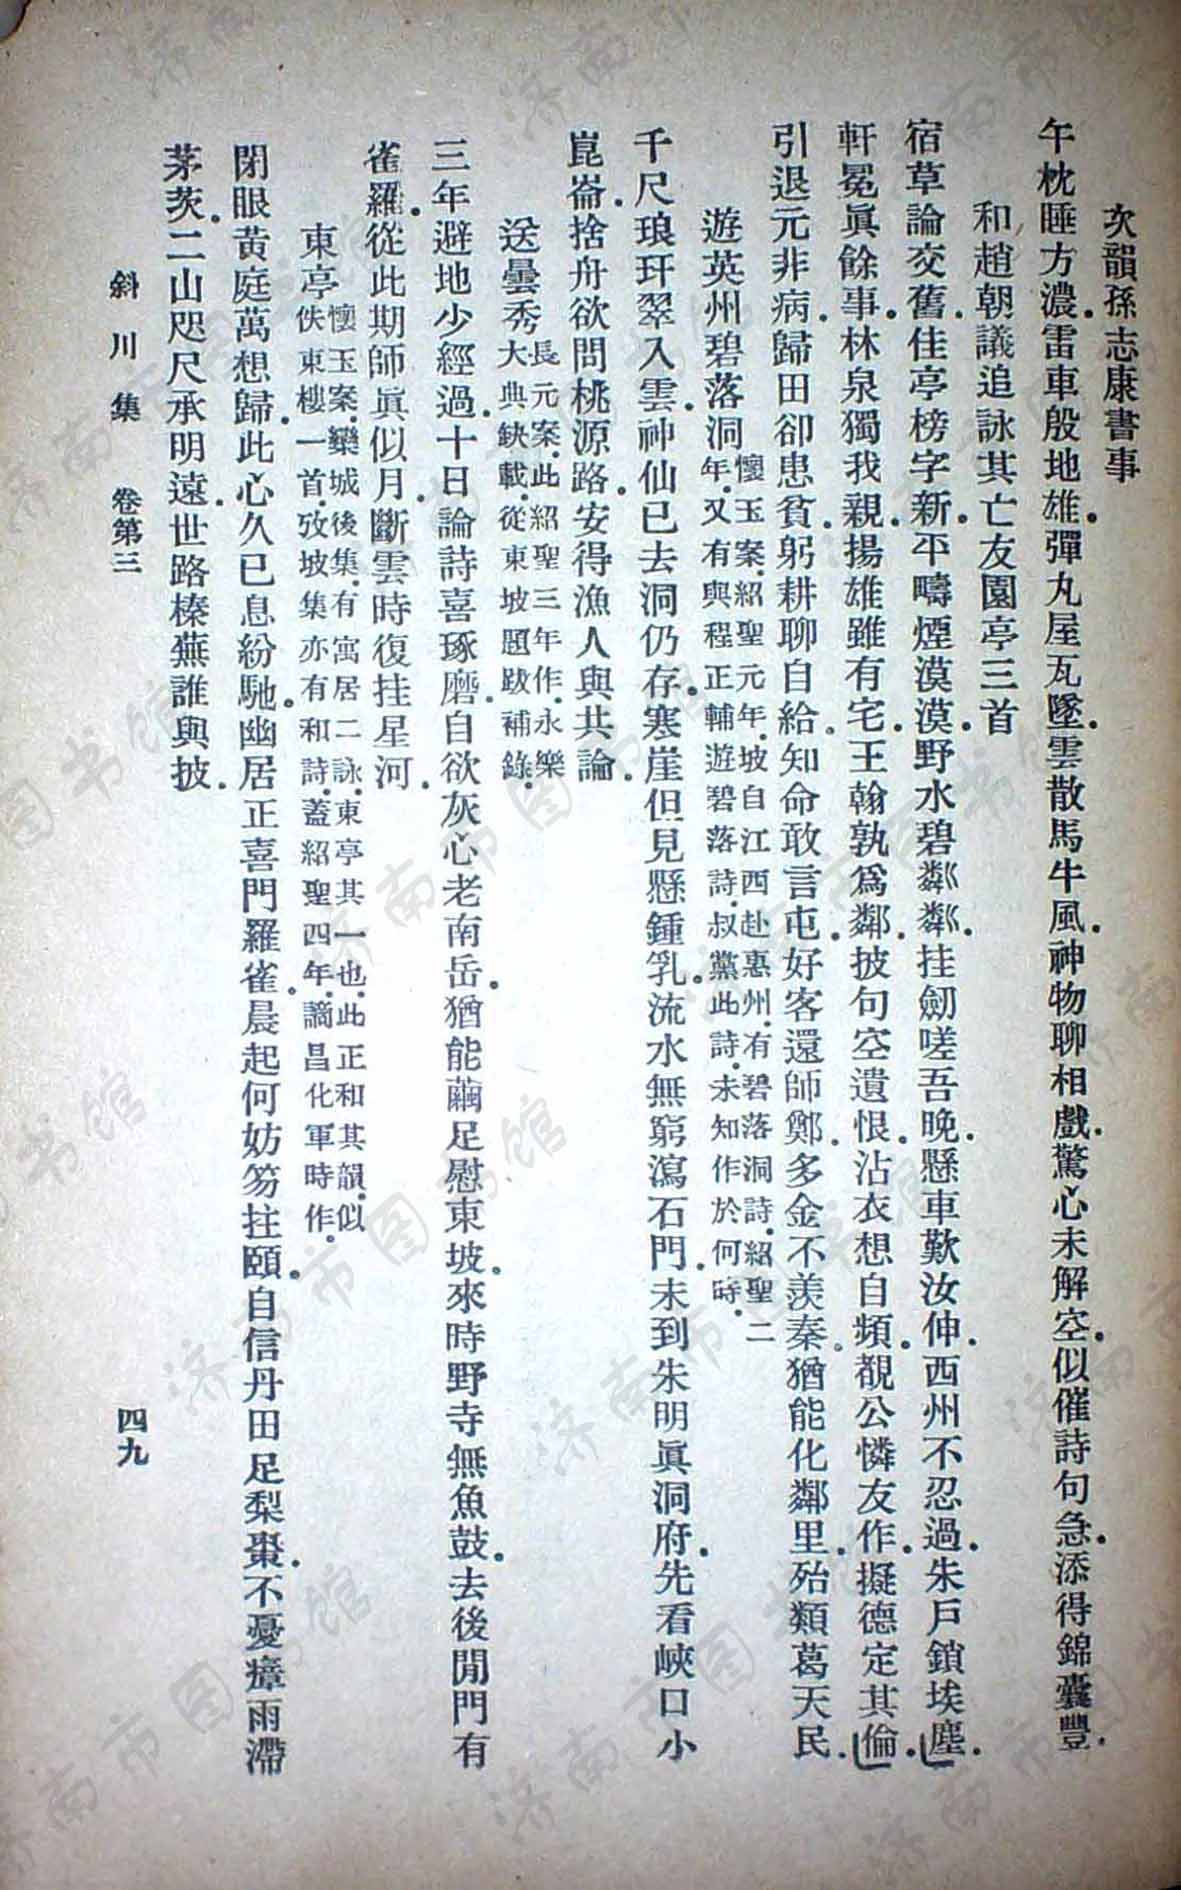 次韻孫志康書事
午枕睡方濃.雷車殷地雄.彈丸屋瓦墜.雲散馬牛風.神物聊相戲.驚心未解空.似催詩句急.添得錦囊豐.
和趙朝議追詠其亡友園亭三首
宿草論交舊.佳亭榜字新.平疇煙漠漠.野水碧粼粼.挂劒嗟吾晚.懸車歎汝伸.西州不忍過.朱戶鎖埃塵.
軒冕眞餘事.林泉獨我親.揚雄雖有宅.王翰孰爲鄰.披句空遺恨.沾衣想自頻.覩公憐友作.擬德定其倫.
引退元非病.歸田卻患貧.躬耕聊自給.知命敢言屯.好客還師鄭.多金不羨秦.猶能化鄰里.殆類葛天民.
遊英州碧落洞懷玉案.紹聖元年.坡自江西赴惠州.有碧落洞詩.紹聖二
年.又有與程正輔遊碧落詩.叔黨此詩.未知作於何時.
千尺琅玕翠入雲.神仙已去洞仍存.寒崖但見懸鍾乳.流水無窮瀉石門.未到朱明眞洞府.先看峽口小
崑崙.捨舟欲問桃源路.安得漁人與共論.
送曇秀長元案.此紹聖三年作.永樂
大典缺載.從東坡題跋補錄.
三年避地少經過.十日論詩喜琢磨.自欲灰心老南岳.猶能繭足慰東坡.來時野寺無魚鼓.去後閒門有
雀羅.從此期師眞似月.斷雲時復挂星河.
東亭懷玉案.欒城後集.有寓居二詠.東亭其一也.此正和其韻.似
佚東樓一首.攷坡集亦有和詩.蓋紹聖四年.謫昌化軍時作.
閉眼黃庭萬想歸.此心久已息紛馳.幽居正喜門羅雀.晨起何妨笏拄頤.自信丹田足梨棗.不憂瘴雨滯
茅茨.二山咫尺承明遠.世路榛蕪誰與披.
斜川集 卷第三 四九